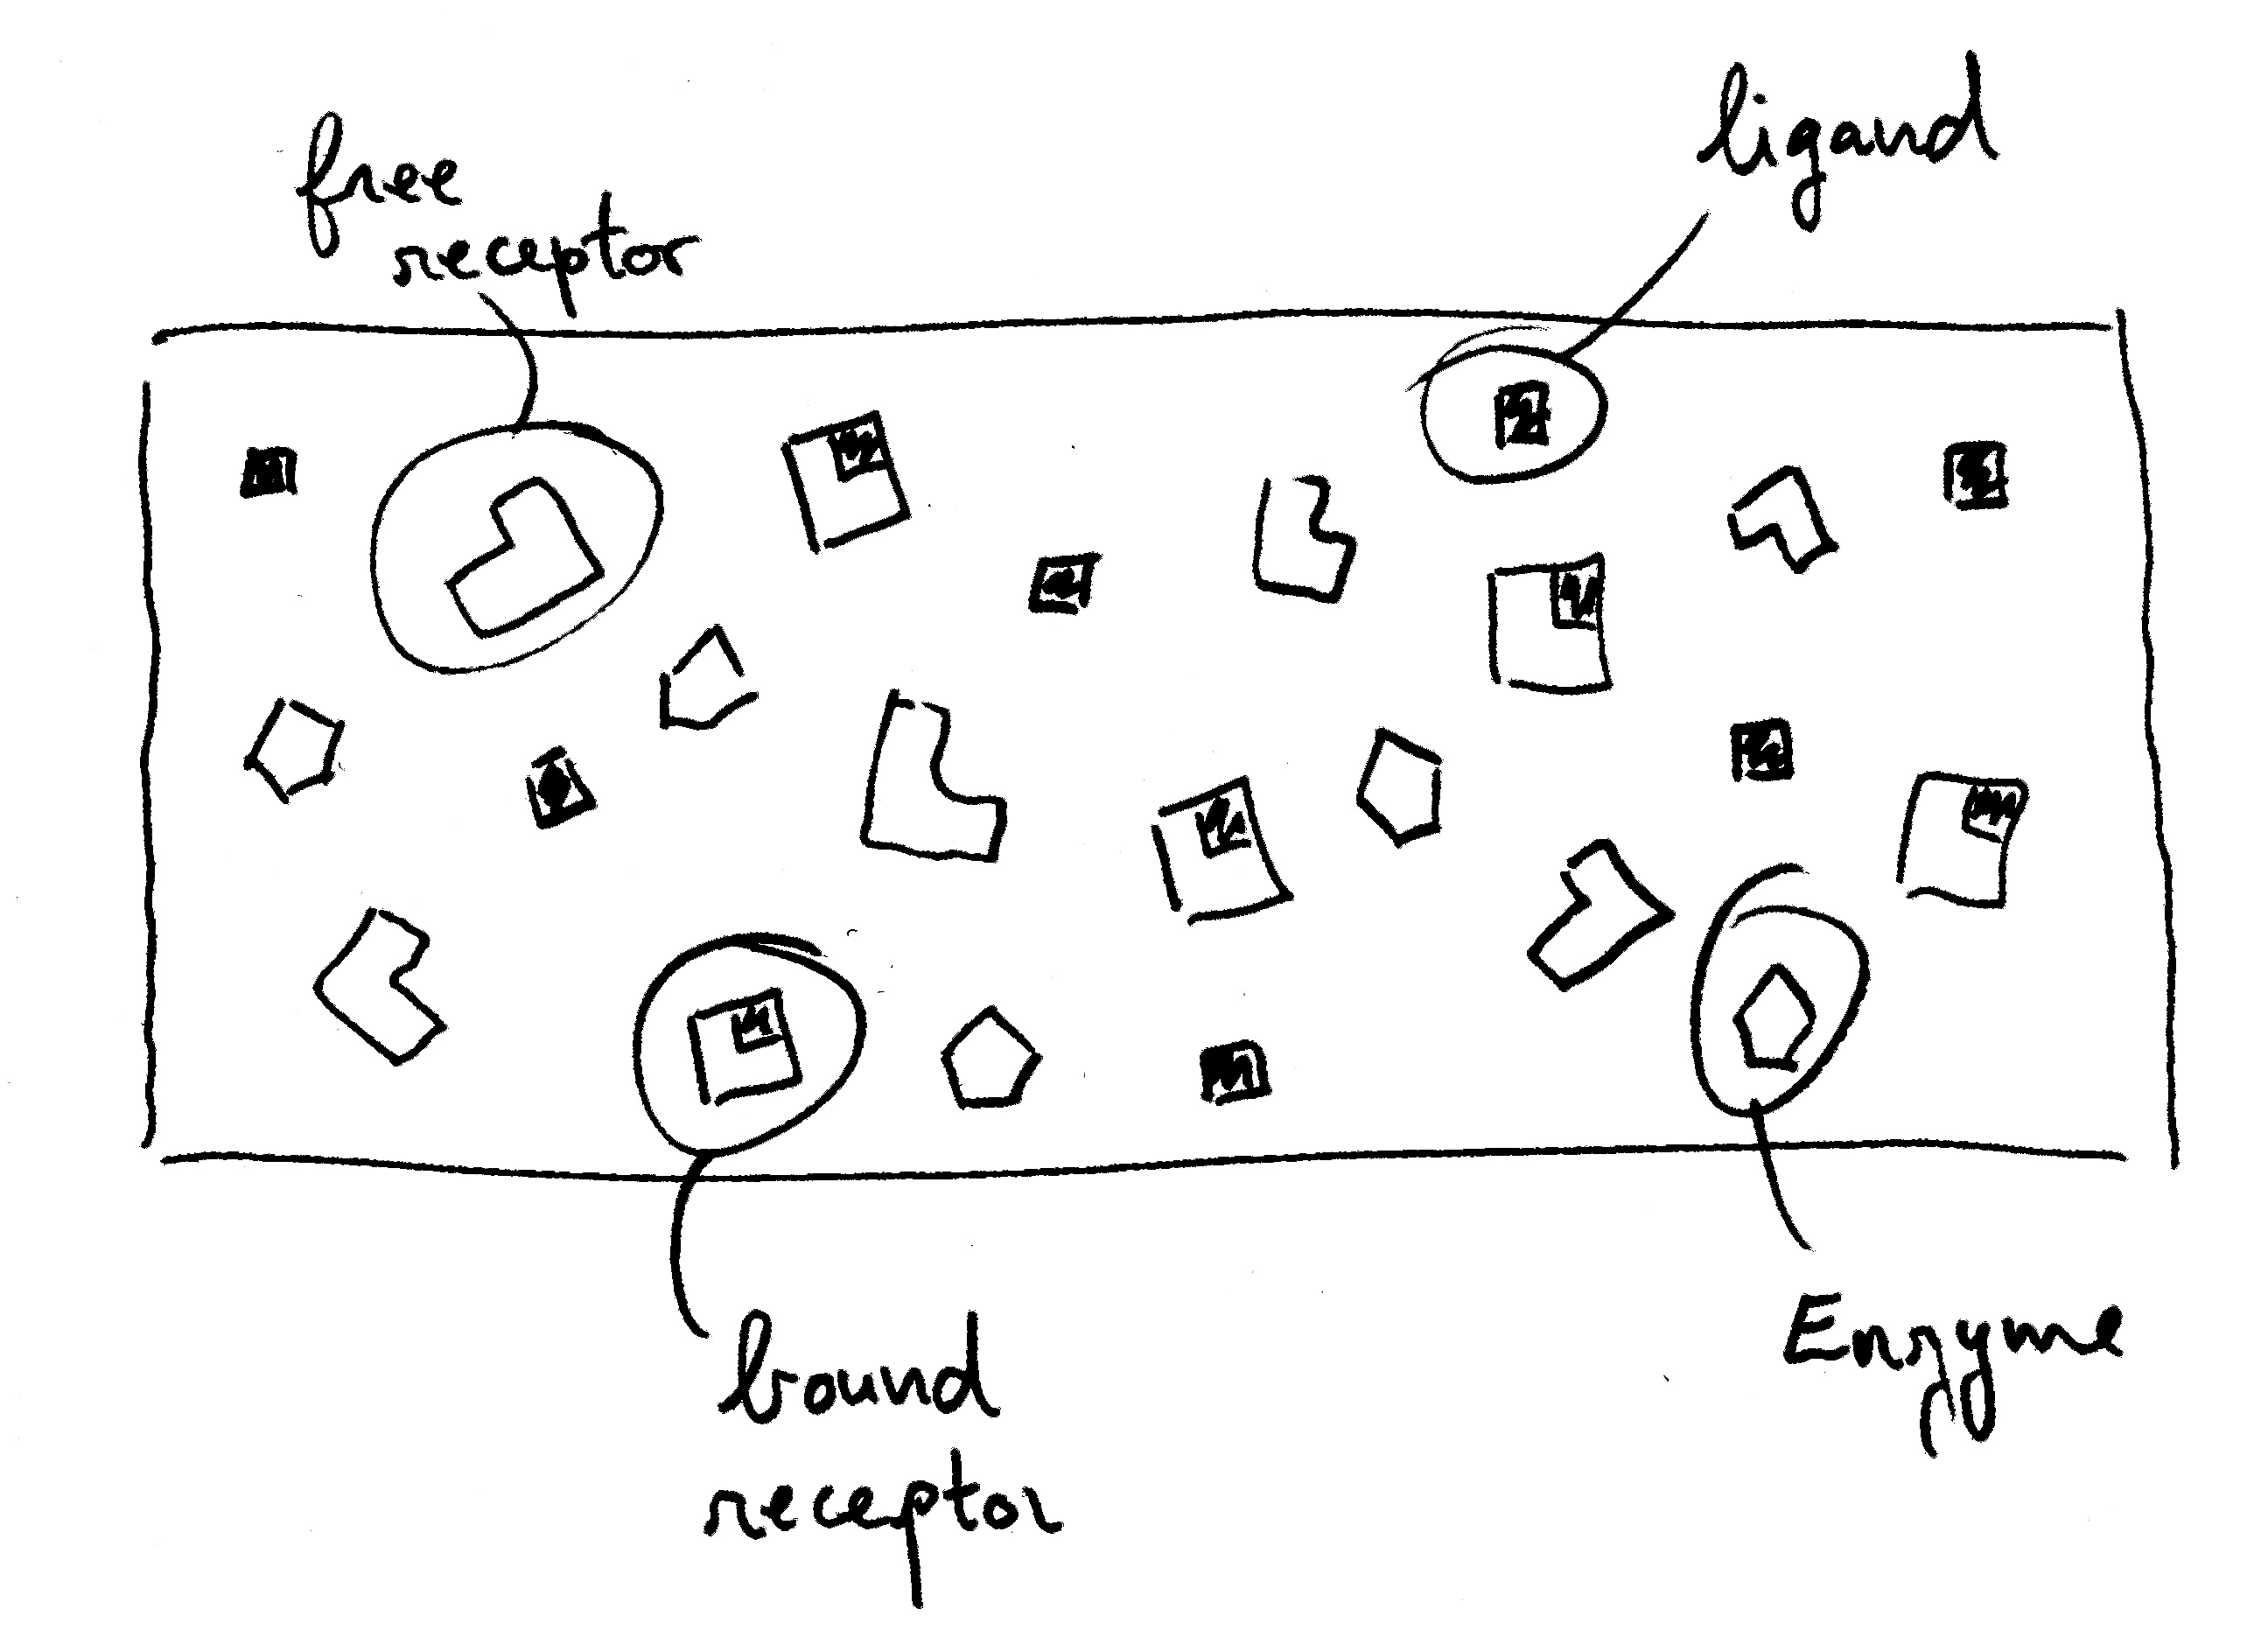 free
receptor
ligand
bound
receptor
Enzyme